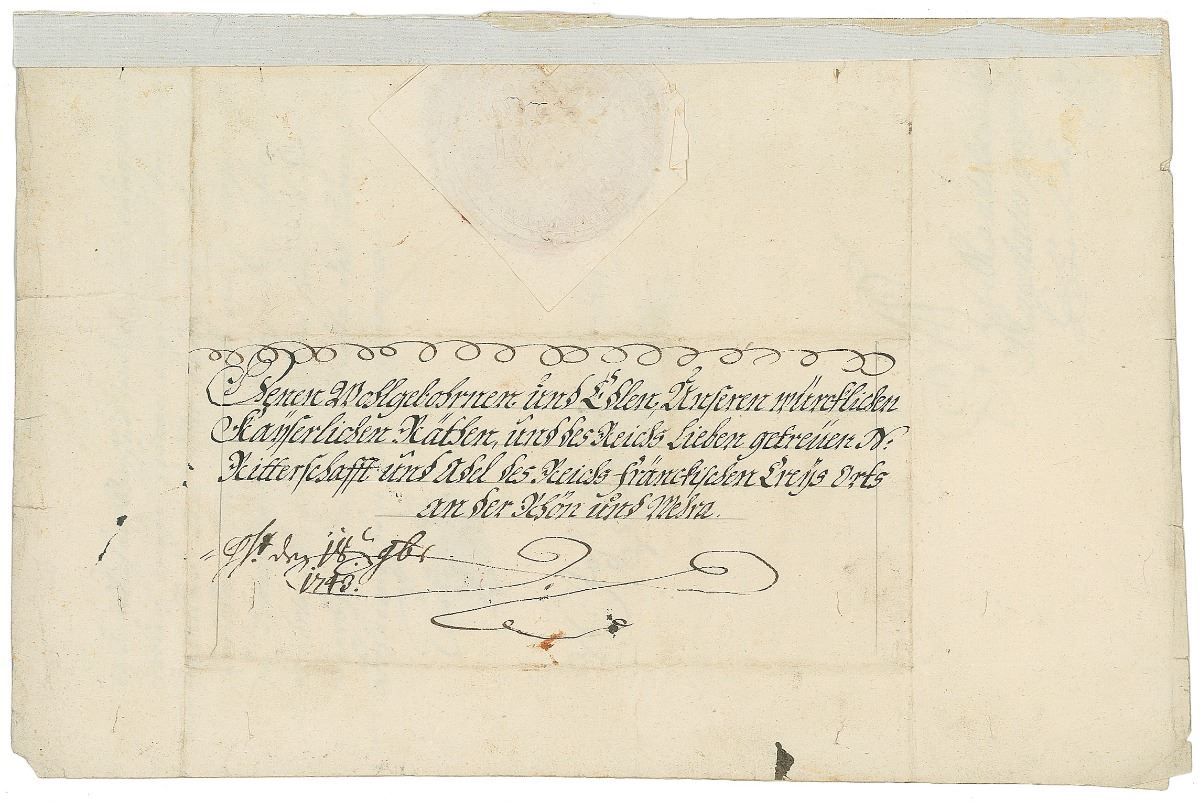 Denen Wohlgebohrnen und Edlen, Unseren würcklichen
Kayserlichen Räthen, und des Reichs Lieben getreüen N:
Ritterschafft und Adel des Reichs fränckischen Creÿs Orts
an der Rhön und Wehra.
den 18t 9br
1743.